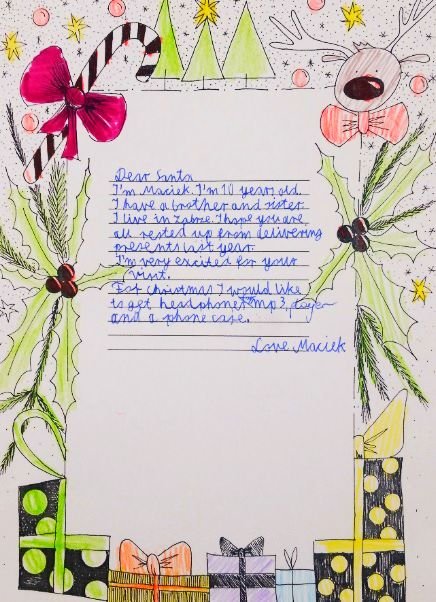 Dear Santa
I'm Maciek. I'm 10 years old.
I have a brother and sister.
I live in Zabrze. I hope you are
all rested up from delivering
presents last year.
I'm very excited for your
visit.
For Christmas I would like
to get headphones, mp3 player
and a phone case.
Love Maciek